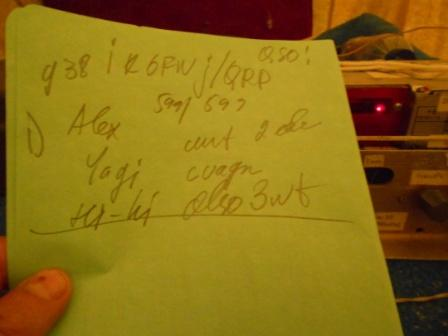 QSO:
938 i k6FWj/QRP
599/599
1) Alex ant 2 ele
Yagi cuagn
Hi-hi also 3wt